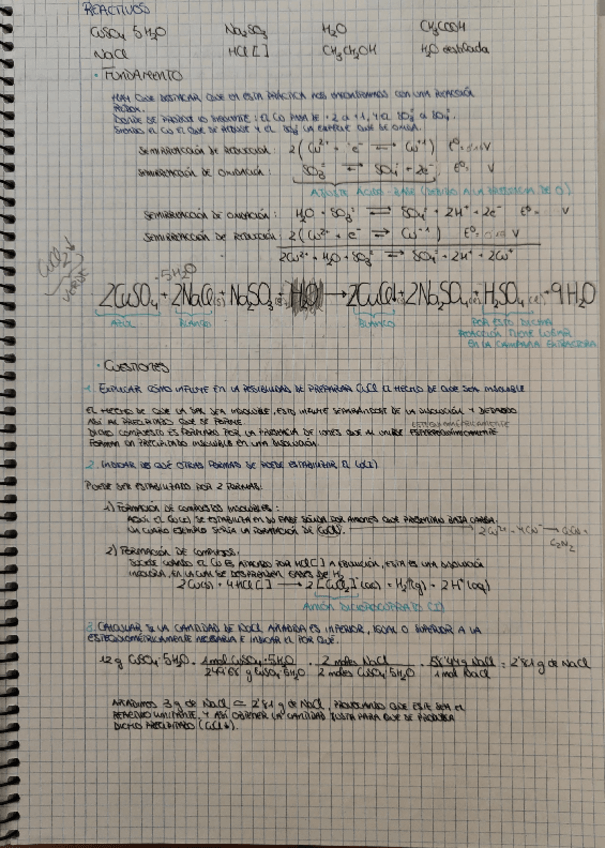 REACTIVOS
CuSO₄·5H₂O Na₂SO₃ H₂O CH₃COOH
NaCl HCl [ ] CH₃CH₂OH H₂O destilada
· FUNDAMENTO
HAY QUE DESTACAR QUE EN ESTA PRÁCTICA NOS ENCONTRAMOS CON UNA REACCIÓN
REDOX.
DONDE SE PRODUCE LO SIGUIENTE: EL Cu PASA DE +2 a +1, Y EL SO₃²⁻ a SO₄²⁻.
SIENDO EL Cu EL QUE SE REDUCE Y EL SO₃²⁻ LA ESPECIE QUE SE OXIDA.
SEMIRREACCIÓN DE REDUCCIÓN: 2(Cu²⁺ + e⁻ ⇌ Cu⁺¹) Eº= V
SEMIRREACCIÓN DE OXIDACIÓN: SO₃²⁻ ⇌ SO₄²⁻ + 2e⁻ Eº= V
AJUSTE ÁCIDO-BASE (DEBIDO A LA PRESENCIA DE O)
SEMIRREACCIÓN DE OXIDACIÓN: H₂O + SO₃²⁻ ⇌ SO₄²⁻ + 2H⁺ + 2e⁻ Eº= V
SEMIRREACCIÓN DE REDUCCIÓN: 2(Cu²⁺ + e⁻ ⇌ Cu⁺¹) Eº= V
2Cu²⁺ + H₂O + SO₃²⁻ ⇌ SO₄²⁻ + 2H⁺ + 2Cu⁺
CuCl₂↓
VERDE
·5H₂O
2CuSO₄ + 2NaCl + Na₂SO₃ + H₂O → 2CuCl + 2Na₂SO₄ + H₂SO₄ + 9H₂O
AZUL BLANCO BLANCO POR ESTO DICHA
REACCIÓN TIENE LUGAR
EN LA CAMPANA EXTRACTORA
· CUESTIONES
1. EXPLICAR CÓMO INFLUYE EN LA POSIBILIDAD DE PREPARAR CuCl EL HECHO DE QUE SEA INSOLUBLE
EL HECHO DE QUE LA SAL SEA INSOLUBLE, ESTO INFLUYE SEPARÁNDOSE DE LA DISOLUCIÓN Y DEJANDO
ASÍ AL PRECIPITADO QUE SE FORME.
ESTEQUIOMÉTRICAMENTE
DICHO COMPUESTO ES FORMADO POR LA PRESENCIA DE IONES QUE AL UNIRSE
FORMAN UN PRECIPITADO INSOLUBLE EN UNA DISOLUCIÓN.
2. INDICAR DE QUÉ OTRAS FORMAS SE PUEDE ESTABILIZAR EL Cu(I)
PUEDE SER ESTABILIZADO POR 2 FORMAS:
1) FORMACIÓN DE COMPUESTOS INSOLUBLES:
AQUÍ EL Cu(I) SE ESTABILIZA EN SU FASE SÓLIDA POR ANIONES QUE PRESENTAN BAJA CARGA.
UN CLARO EJEMPLO SERÍA LA FORMACIÓN DE CuCN. → 2Cu²⁺ + 4CN⁻ → CuCN +
C₂N₂
2) FORMACIÓN DE COMPLEJOS.
SUCEDE CUANDO EL Cu ES ATACADO POR HCl [ ] A EBULLICIÓN, ESTA ES UNA DISOLUCIÓN
INCOLORA, EN LA CUAL SE DESPRENDEN GASES DE H₂
2Cu(s) + 4HCl [ ] → 2[CuCl₂]⁻(ac) + H₂(g) + 2H⁺(aq)
ANIÓN DICLOROCUPRATO (I)
3. CALCULAR SI LA CANTIDAD DE NaCl AÑADIDA ES INFERIOR, IGUAL O SUPERIOR A LA
ESTEQUIOMÉTRICAMENTE NECESARIA E INDICAR EL POR QUÉ.
12 g CuSO₄·5H₂O · 1 mol CuSO₄·5H₂O / 249'68 g CuSO₄·5H₂O · 2 moles NaCl / 2 moles CuSO₄·5H₂O · 58'44 g NaCl / 1 mol NaCl = 2'81 g de NaCl
AÑADIMOS 3 g de NaCl ≃ 2'81 g de NaCl, PROVOCANDO QUE ESTE SEA EL
REACTIVO LIMITANTE, Y ASÍ OBTENER LA CANTIDAD JUSTA PARA QUE SE PRODUZCA
DICHO PRECIPITADO (CuCl↓).